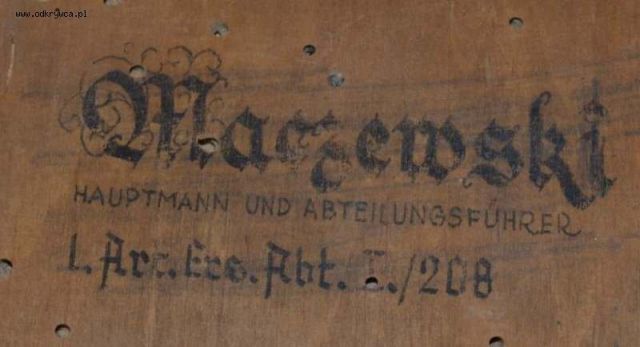 www.odkrywca.pl
Maczewski
HAUPTMANN UND ABTEILUNGSFÜHRER
Abt. I./208